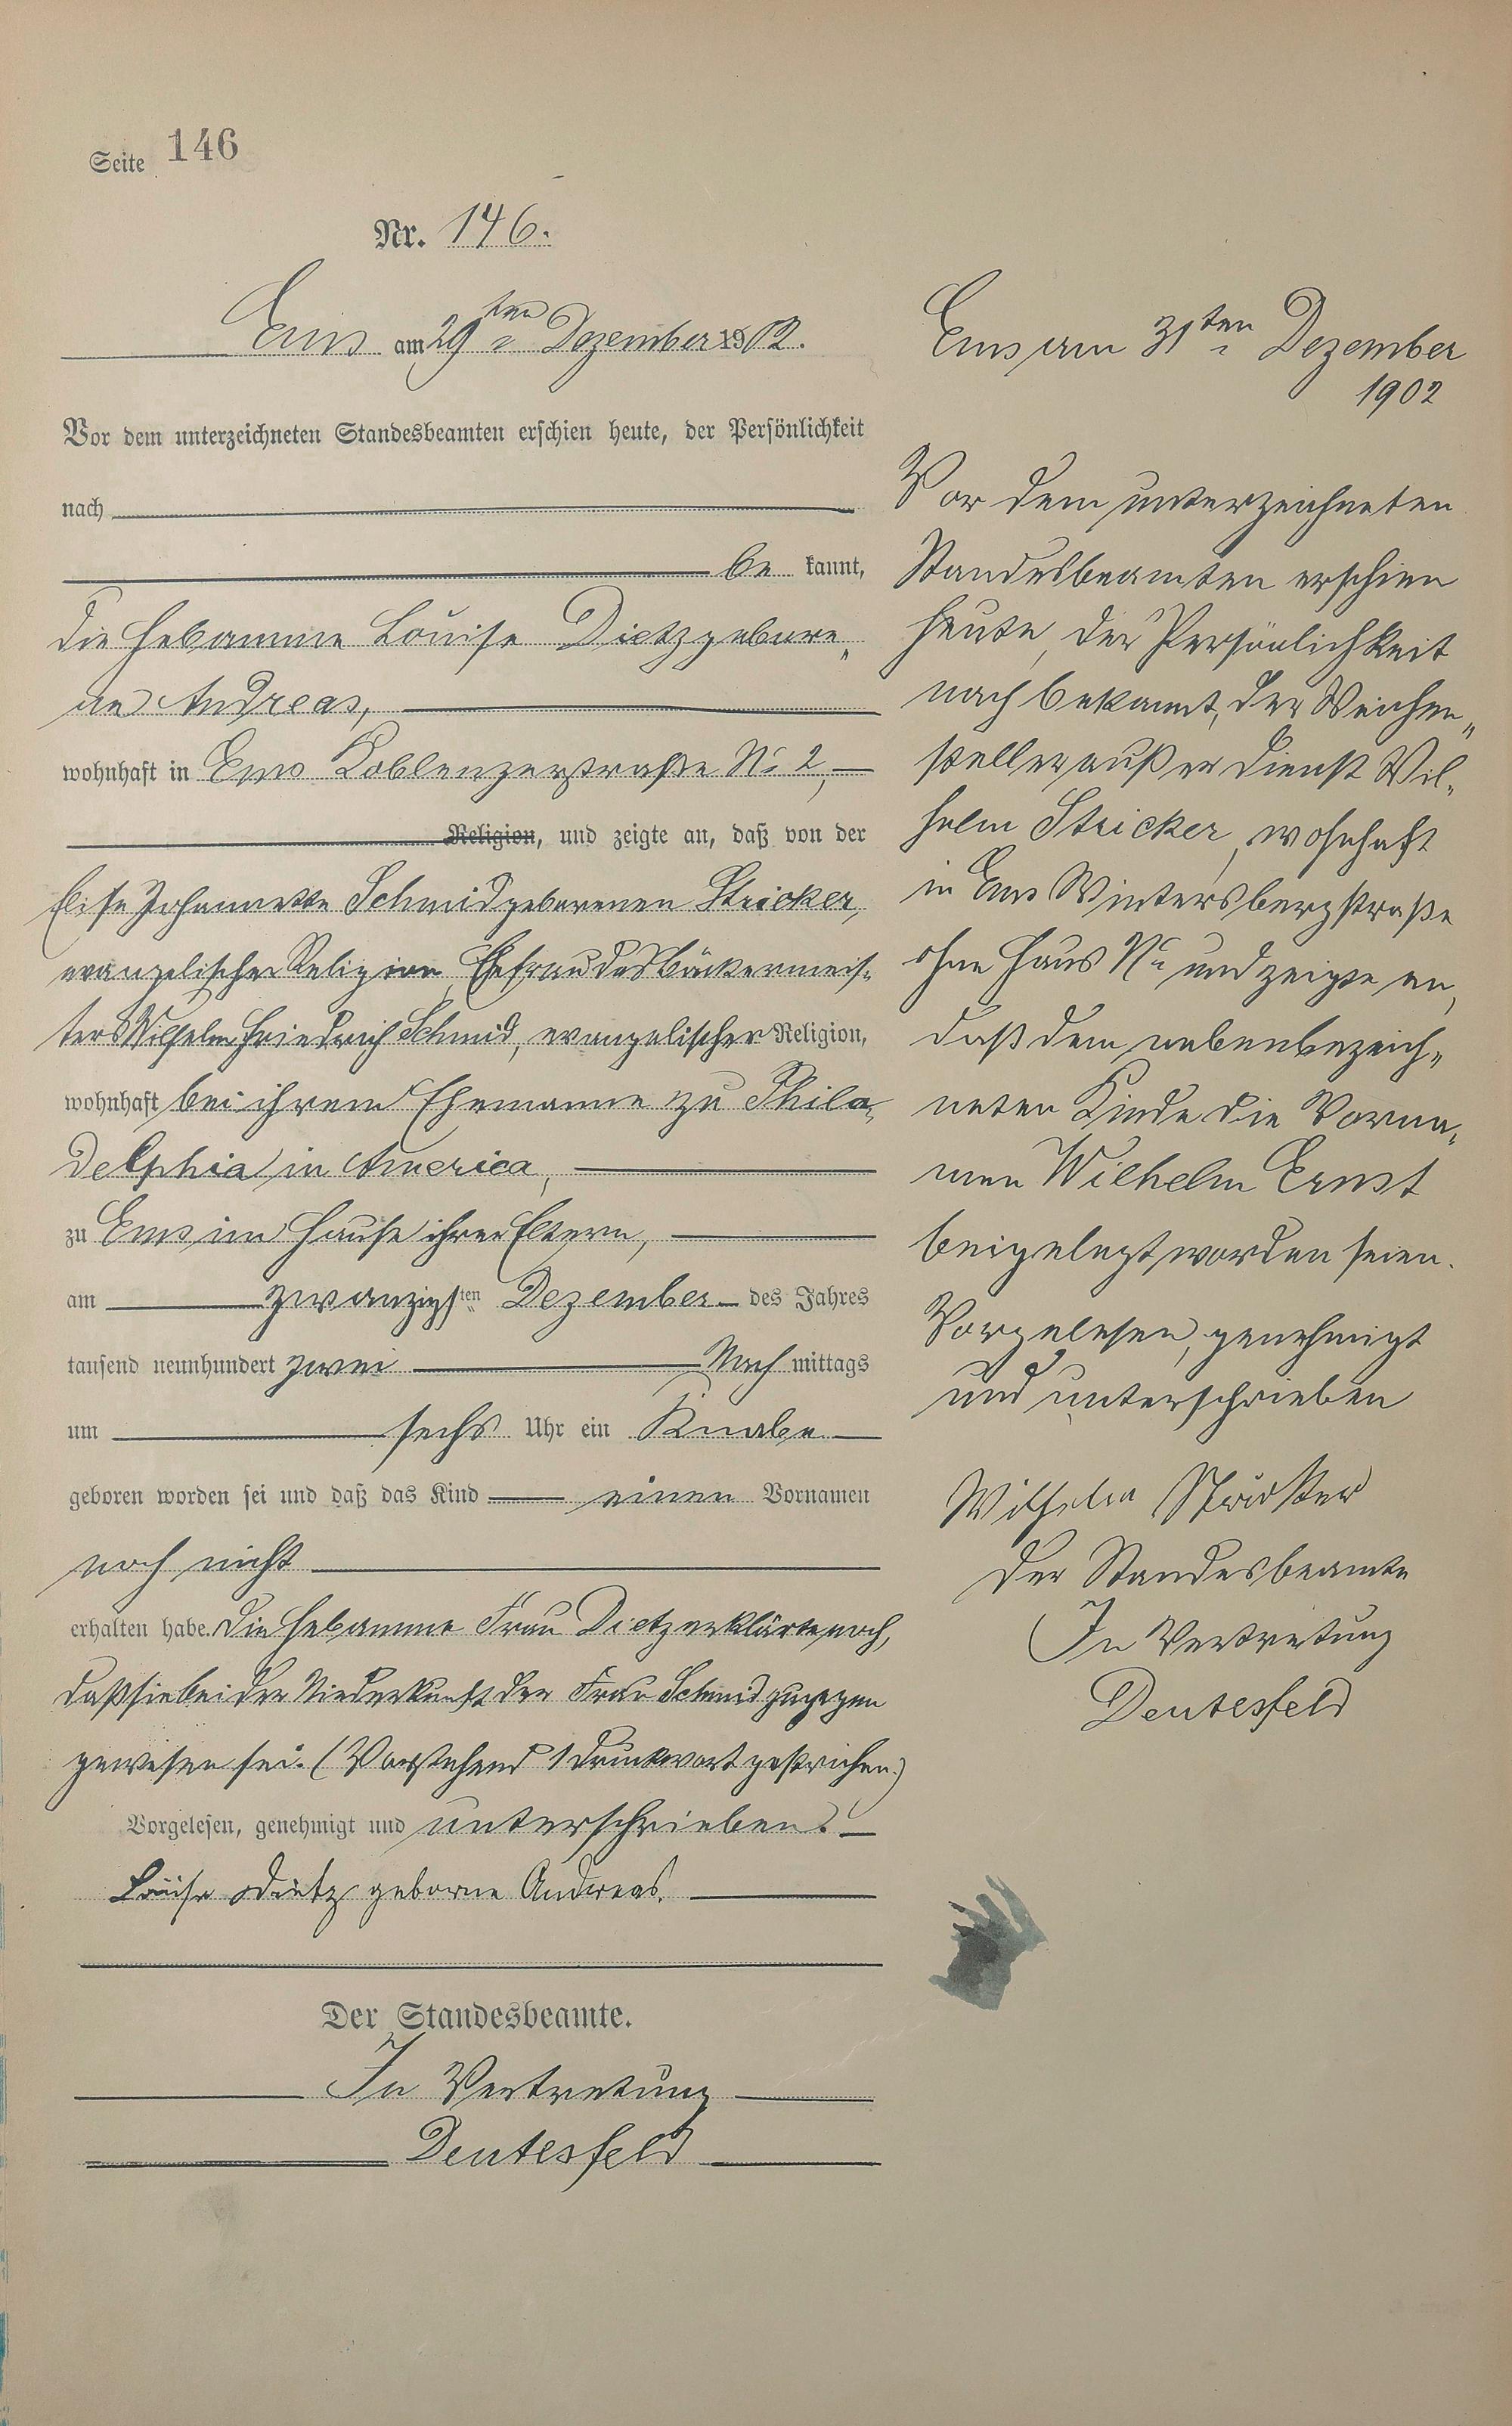 Seite 146
Nr. 146.
Ems am 29ten Dezember 1902.
Vor dem unterzeichneten Standesbeamten erschien heute, der Persönlichkeit
nach
be kannt,
die Hebamme Louise Dietz gebore„
ne Andreas,
wohnhaft in Ems Koblenzerstraße No 2,
Religion, und zeigte an, daß von der
Elise Johannette Schmid geborenen Stricker,
evangelischer Religion, Ehefrau des Bäckermeis„
ters Wilhelm Friedrich Schmid, evangelischer Religion,
wohnhaft bei ihrem Ehemanne zu Phila„
delphia in America,
zu Ems im Hause ihrer Eltern,
am zwanzigsten Dezember des Jahres
tausend neunhundert zwei Nach mittags
um sechs Uhr ein Knabe
geboren worden sei und daß das Kind einen Vornamen
noch nicht
erhalten habe. Die Hebamme Frau Dietz erklärte noch,
daß sie bei der Niederkunft der Frau Schmid zugegen
gewesen sei. (Vorstehend 1 Druckwort gestrichen.)
Vorgelesen, genehmigt und unterschrieben.
Louise Dietz geborne Andreas.
Der Standesbeamte.
In Vertretung
Deutesfeld
Ems am 31ten Dezember
1902
Vor dem unterzeichneten
Standesbeamten erschien
heute, der Persönlichkeit
nach bekannt, der Weichen„
steller außer Dienst Wil„
helm Stricker, wohnhaft
in Ems Wintersbergstraße
ohne Haus No und zeigte an,
daß dem nebenbezeich„
neten Kinde die Vorna„
men Wilhelm Ernst
beigelegt worden seien.
Vorgelesen, genehmigt
und unterschrieben
Wilhelm Stricker
Der Standesbeamte
In Vertretung
Deutesfeld